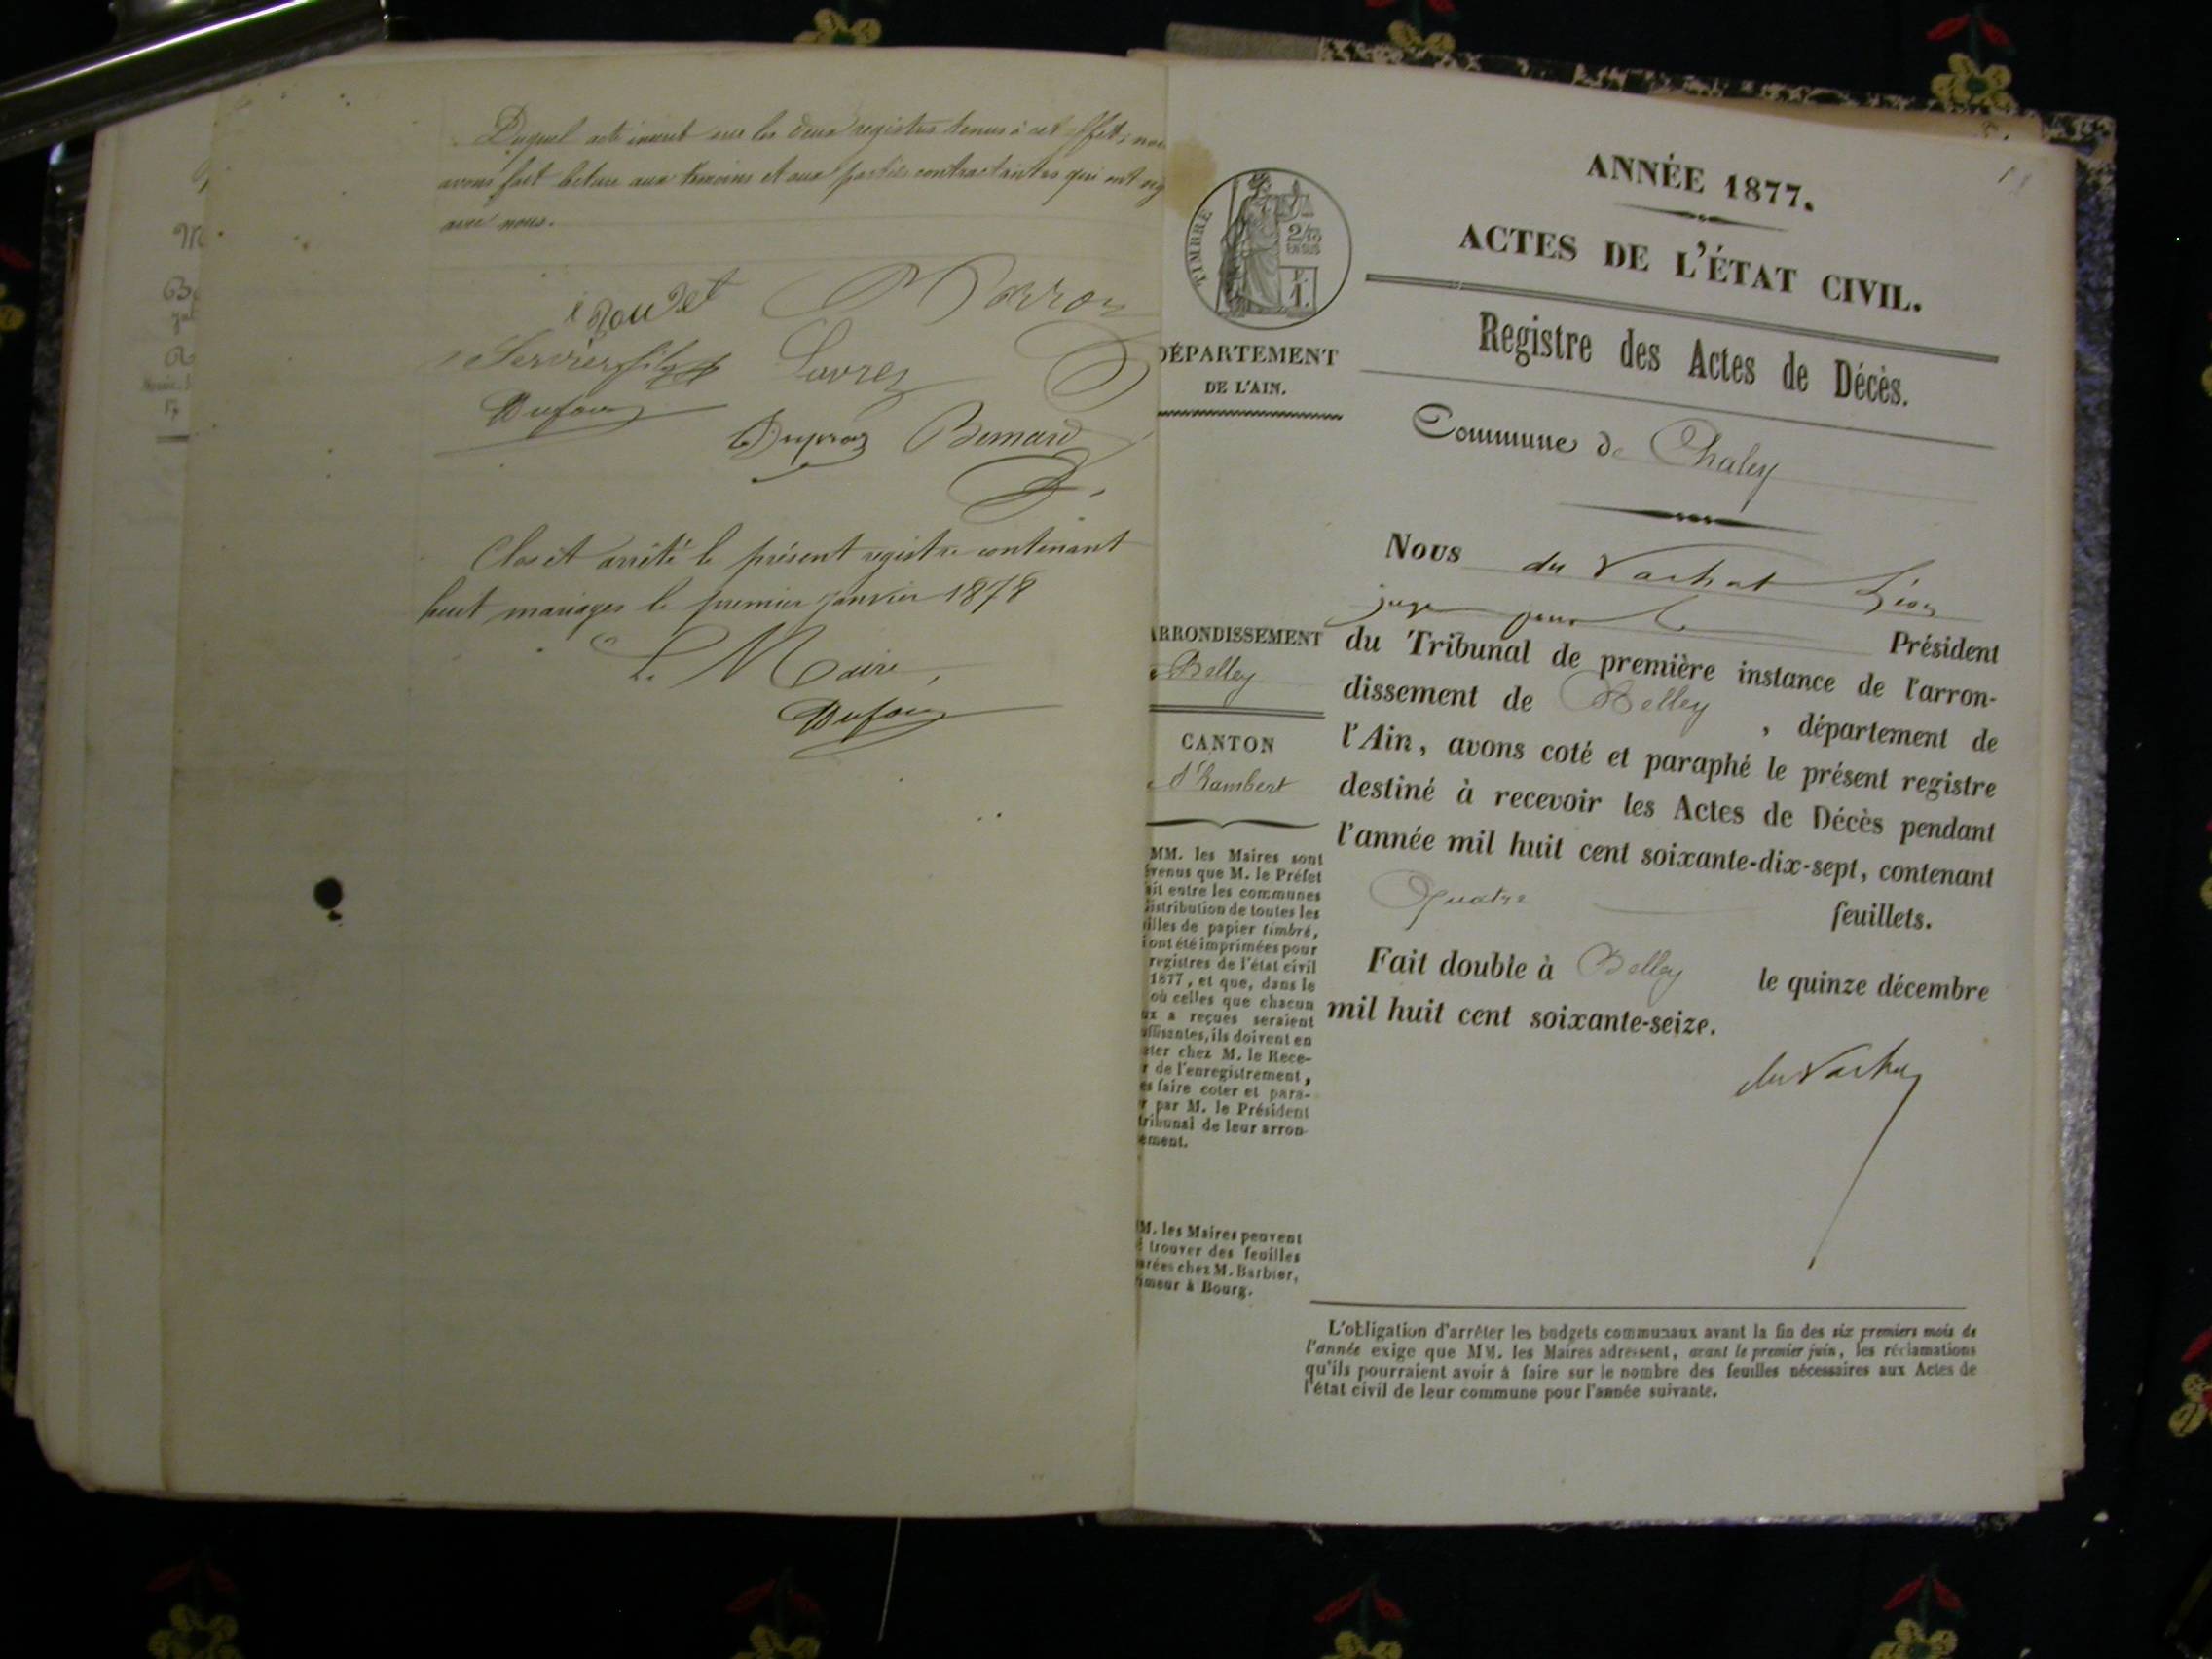 Duquel acte inscrit sur les deux registres tenus à cet effet, nous
avons fait lecture aux témoins et aux parties contractantes qui ont sig
avec nous.
Dufour
Bernard
Clos et arrêté le présent registre contenant
huit mariages le premier janvier 1878
Le Maire,
Dufour
TIMBRE
2/10
EN SUS
F.
1.
DÉPARTEMENT
DE L'AIN.
ARRONDISSEMENT
Belley
CANTON
St Rambert
MM. les Maires sont
venus que M. le Préfet
ait entre les communes
distribution de toutes les
uilles de papier timbré,
i ont été imprimées pour
registres de l'état civil
1877, et que, dans le
où celles que chacun
ux a reçues seraient
uffisantes, ils doivent en
eter chez M. le Rece-
r de l'enregistrement,
es faire coter et para-
r par M. le Président
tribunal de leur arron-
ement.
M. les Maires peuvent
trouver des feuilles
brées chez M. Barbier,
imeur à Bourg.
ANNÉE 1877.
ACTES DE L'ÉTAT CIVIL.
Registre des Actes de Décès.
Commune de Chaley
Nous du Vachat Léon
juge pour le Président
du Tribunal de première instance de l'arron-
dissement de Belley, département de
l'Ain, avons coté et paraphé le présent registre
destiné à recevoir les Actes de Décès pendant
l'année mil huit cent soixante-dix-sept, contenant
Quatre feuillets.
Fait double à Belley le quinze décembre
mil huit cent soixante-seize.
du Vachat
L'obligation d'arrêter les budgets communaux avant la fin des six premiers mois de
l'année exige que MM. les Maires adressent, avant le premier juin, les réclamations
qu'ils pourraient avoir à faire sur le nombre des feuilles nécessaires aux Actes de
l'état civil de leur commune pour l'année suivante.